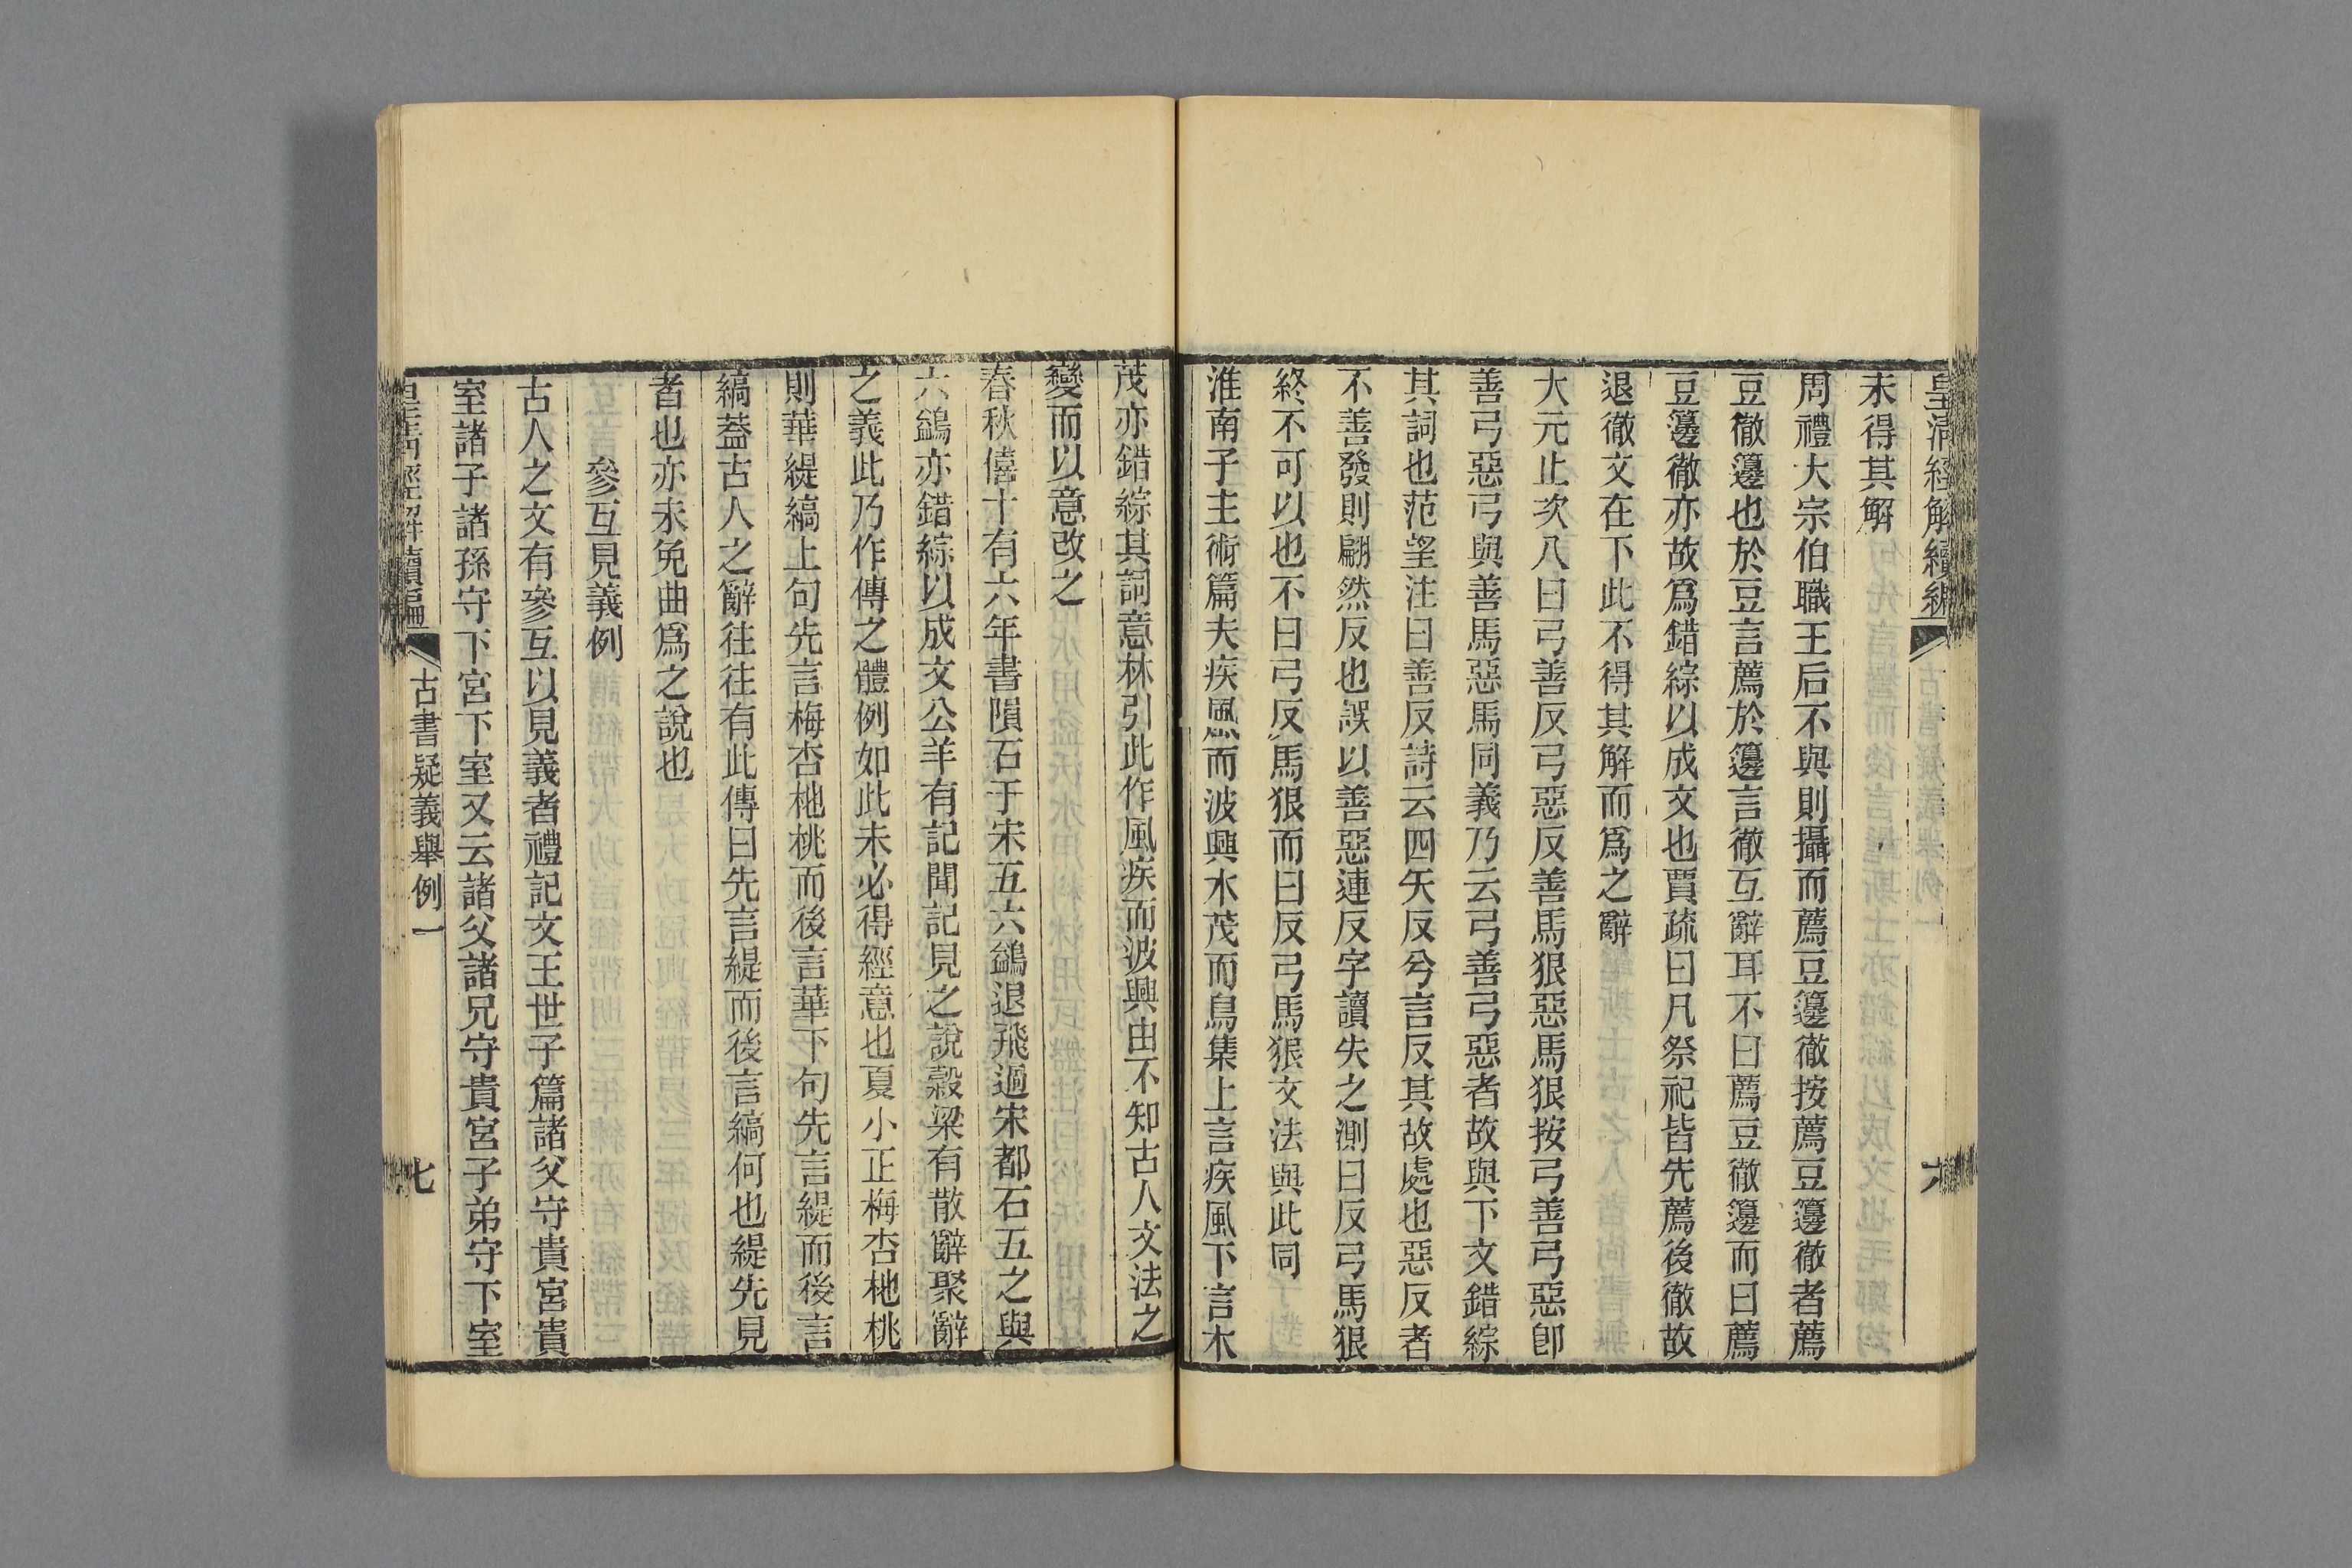 皇清經解續編
六
未得其解
周禮大宗伯職王后不與則攝而薦豆籩徹按薦豆籩徹者薦
豆徹籩也於豆言薦於籩言徹互辭耳不曰薦豆徹籩而曰薦
豆籩徹亦故爲錯綜以成文也賈疏曰凡祭祀皆先薦後徹故
退徹文在下此不得其解而爲之辭
大元止次八曰弓善反弓惡反善馬狠惡馬狠按弓善弓惡卽
善弓惡弓與善馬惡馬同義乃云弓善弓惡者故與下文錯綜
其詞也范望注曰善反詩云四矢反兮言反其故處也惡反者
不善發則翩然反也誤以善惡連反字讀失之測曰反弓馬狠
終不可以也不曰弓反馬狠而曰反弓馬狠文法與此同
淮南子主術篇夫疾風而波興木茂而鳥集上言疾風下言木
茂亦錯綜其詞意林引此作風疾而波興由不知古人文法之
變而以意改之
春秋僖十有六年書隕石于宋五六鷁退飛過宋都石五之與
六鷁亦錯綜以成文公羊有記聞記見之說穀梁有散辭聚辭
之義此乃作傳之體例如此未必得經意也夏小正梅杏杝桃
則華緹縞上句先言梅杏杝桃而後言華下句先言緹而後言
縞葢古人之辭往往有此傳曰先言緹而後言縞何也緹先見
者也亦未免曲爲之說也
參互見義例
古人之文有參互以見義者禮記文王世子篇諸父守貴宮貴
室諸子諸孫守下宮下室又云諸父諸兄守貴宮子弟守下室
皇清經解續編
古書疑義舉例一
七